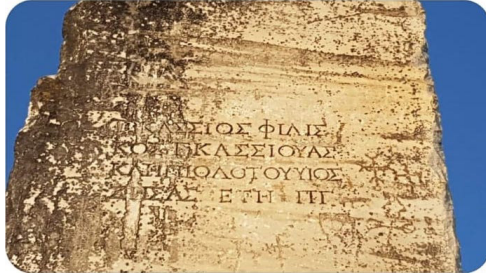 ΚΑΣΣΙΟΣ ΦΙΛΙΣ
ΚΟΣ Γ ΚΑΣΣΙΟΥ ΑΣ
ΚΛΗΠΙΟΔΟΤΟΥ ΥΙΟΣ
ΖΗΣΑΣ ΕΤΗ ΠΓ